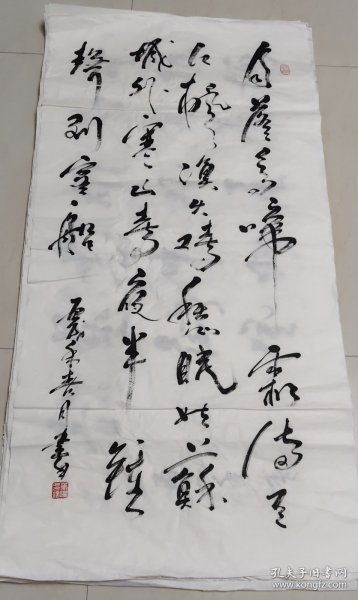 月落乌啼霜满天
江枫渔火对愁眠姑苏
城外寒山寺夜半钟
声到客船
春月书
孔夫子旧书网